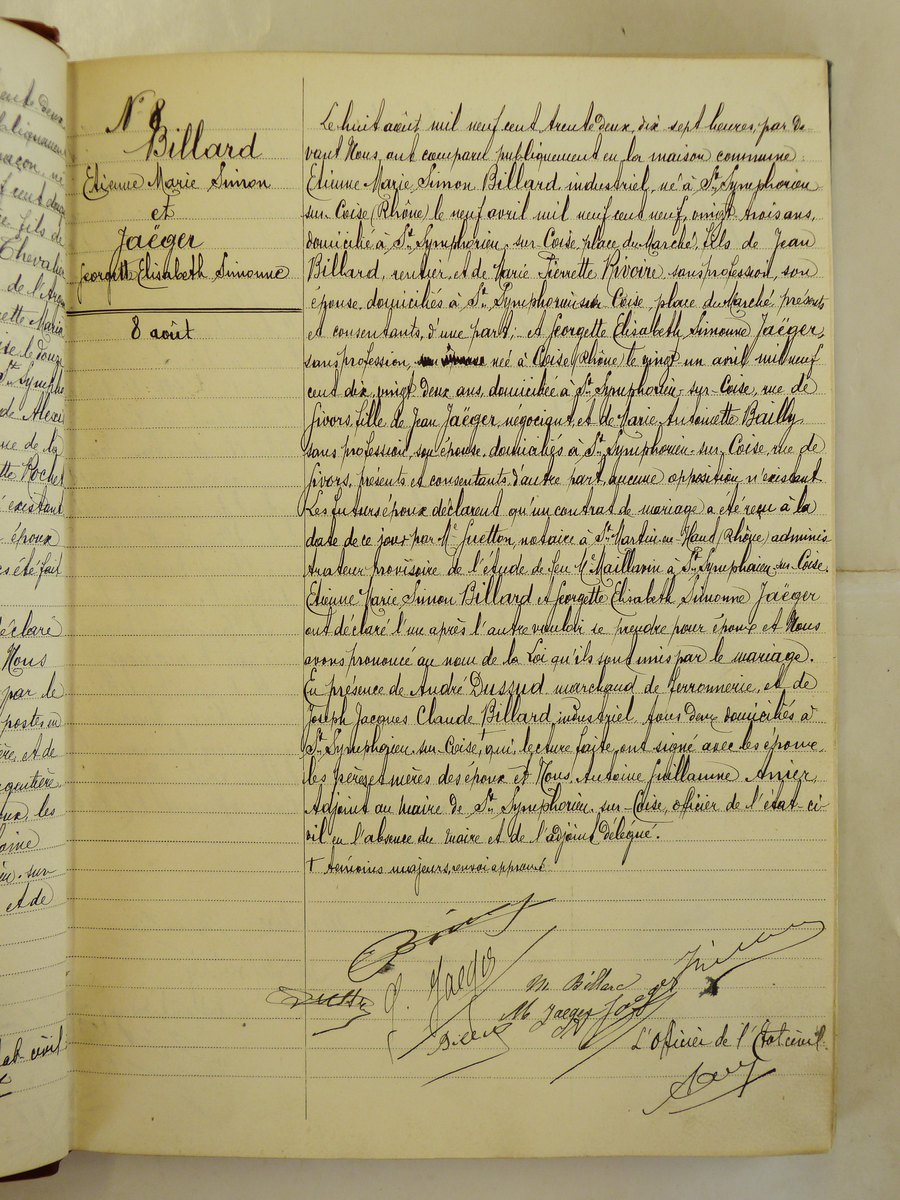 N° 8
Billard
Etienne Marie Simon
et
Jaëger
Georgette Elisabeth Simonne
8 août
Le huit août mil neuf cent trente deux, dix sept heures, par De
vant Nous, ont comparu publiquement en la maison commune:
Etienne Marie Simon Billard, industriel, né à St Symphorien
sur-Coise (Rhône) le neuf avril mil neuf cent neuf, vingt trois ans,
domicilié à St Symphorien-sur-Coise, place du Marché, fils de Jean
Billard, rentier, et de Marie Pierrette Rivoire sans profession, son
épouse, domiciliés à St Symphorien sur Coise, place du Marché, présents
et consentants, d'une part; et Georgette Elisabeth Simonne Jaëger,
sans profession, née à Coise (Rhône) le vingt un avril mil neuf
cent dix, vingt deux ans, domiciliée à St Symphorien-sur-Coise, rue de
Givors, fille de Jean Jaëger, négociant, et de Marie Antoinette Bailly
sans profession, son épouse, domiciliés à St Symphorien-sur-Coise, rue de
Givors, présents et consentants, d'autre part, aucune opposition n'existant
Les futurs époux déclarent qu'un contrat de mariage a été reçu à la
date de ce jour par Me Guetton, notaire à St Martin-en-Haut (Rhône) adminis
trateur provisoire de l'étude de feu Me Maillavin à St Symphorien-sur-Coise.
Etienne Marie Simon Billard et Georgette Elisabeth Simonne Jaëger
ont déclaré l'un après l'autre vouloir se prendre pour époux et Nous
avons prononcé au nom de la Loi qu'ils sont unis par le mariage.
En présence de André Dussud, marchand de ferronnerie, et de
Joseph Jacques Claude Billard, industriel, tous deux domiciliés à
St Symphorien-sur-Coise, † qui, lecture faite, ont signé avec les époux,
les pères et mères des époux et Nous, Antoine Guillaume Anier,
Adjoint au maire de St Symphorien-sur-Coise, officier de l'état-ci-
vil en l'absence du maire et de l'adjoint délégué.
† témoins majeurs, renvoi approuvé
G. Jaëger
M. Billard
M Jaeger
L'Officier de l'Etat civil